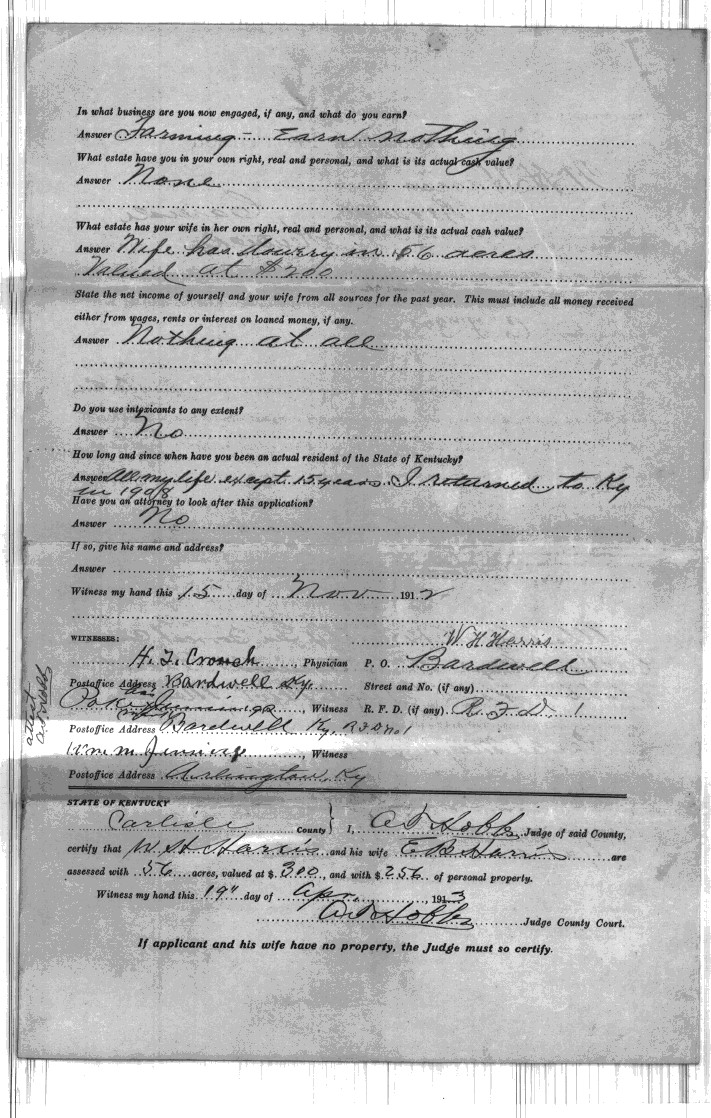 In what business are you now engaged, if any, and what do you earn?
Answer Farming - Earn nothing
What estate have you in your own right, real and personal, and what is its actual cash value?
Answer None
What estate has your wife in her own right, real and personal, and what is its actual cash value?
Answer Wife has dowery in 56 acres
Valued at $200
State the net income of yourself and your wife from all sources for the past year. This must include all money received
either from wages, rents or interest on loaned money, if any.
Answer Nothing at all
Do you use intoxicants to any extent?
Answer No
How long and since when have you been an actual resident of the State of Kentucky?
Answer All my life except 15 years I returned to Ky
in 1908
Have you an attorney to look after this application?
Answer No
If so, give his name and address?
Answer
Witness my hand this 15 day of Nov 1912
WITNESSES: W H Harris
H. T. Crouch, Physician P. O. Bardwell
Postoffice Address Bardwell Ky. Street and No. (if any)
his
, Witness R. F. D. (if any). R. F. D. 1
Postoffice Address Bardwell Ky. R F D no 1
attest
Wm M , Witness
Postoffice Address Arlington Ky
STATE OF KENTUCKY
Carlisle County } I, Hobbs, Judge of said County,
certify that W H Harris and his wife E B Harris are
assessed with 56 acres, valued at $ 300, and with $ 256 of personal property.
Witness my hand this 19" day of Apr, 1913
Hobbs Judge County Court.
If applicant and his wife have no property, the Judge must so certify.